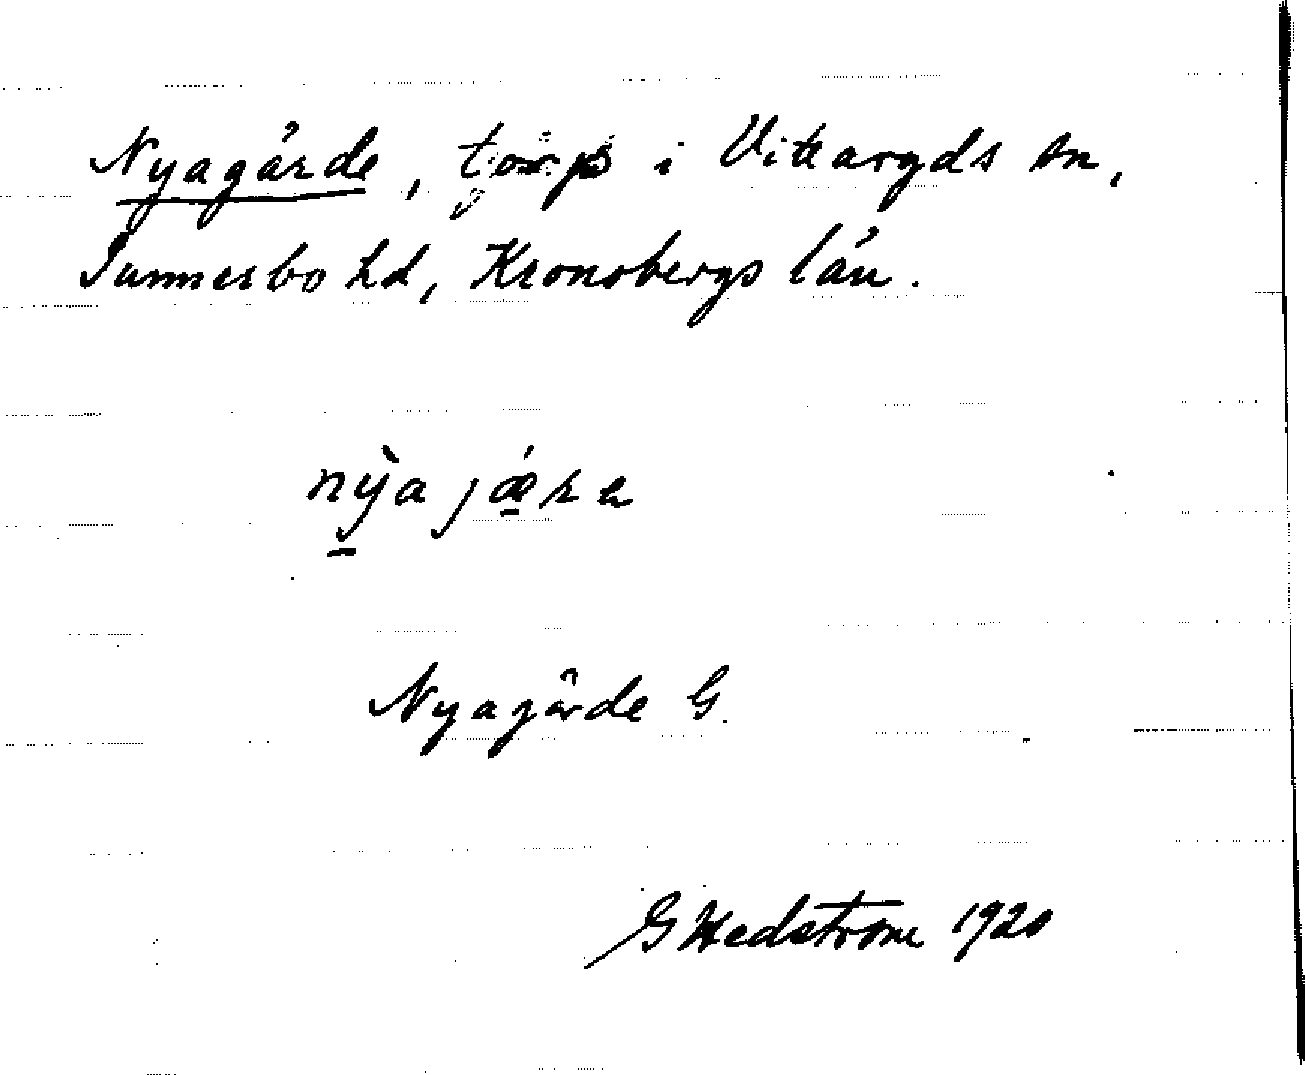 Nyagärde, torp i Vittaryds sn,
Sunnerbo hd, Kronobergs län.
nỳa jǽra
Nyagärde G.
G Hedström 1920